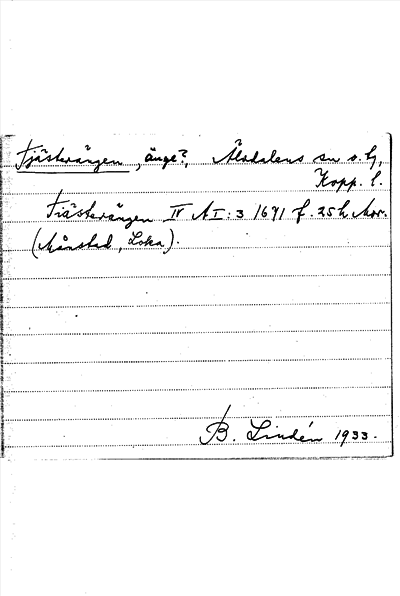 Tjästerängen, änge?, Älvdalens sn o. tg,
Kopp. l.
Tiästerängen IV A I: 3 1671 f. 25h Mor.
(Månstad, Loka).
B. Lindén 1933.